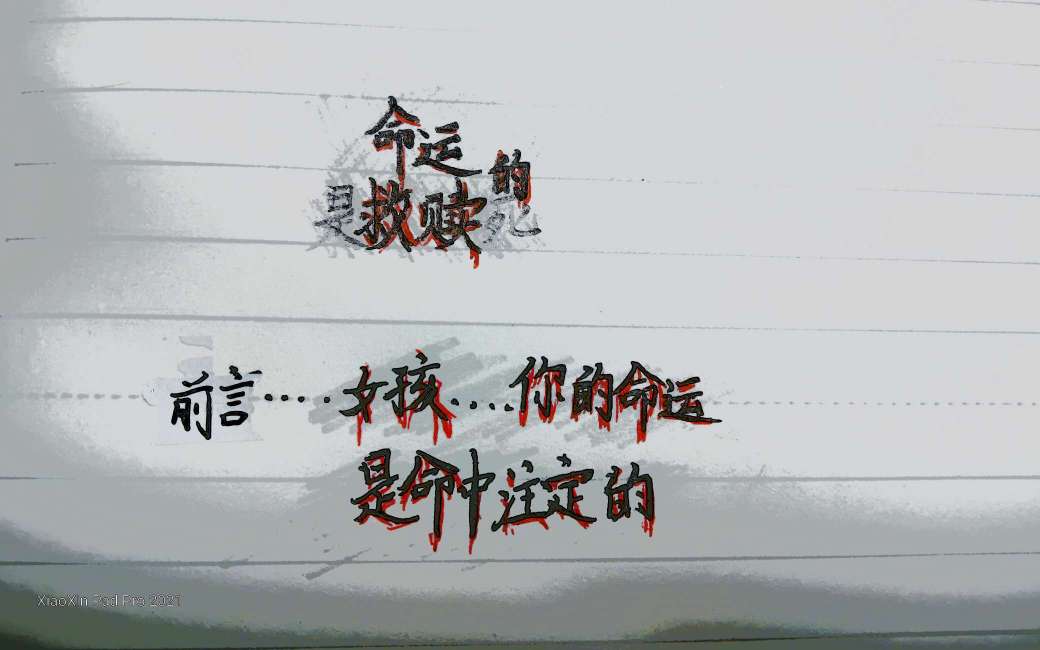 命运的
是救赎死
前言····女孩····你的命运
是命中注定的
XiaoXin Pad Pro 2021